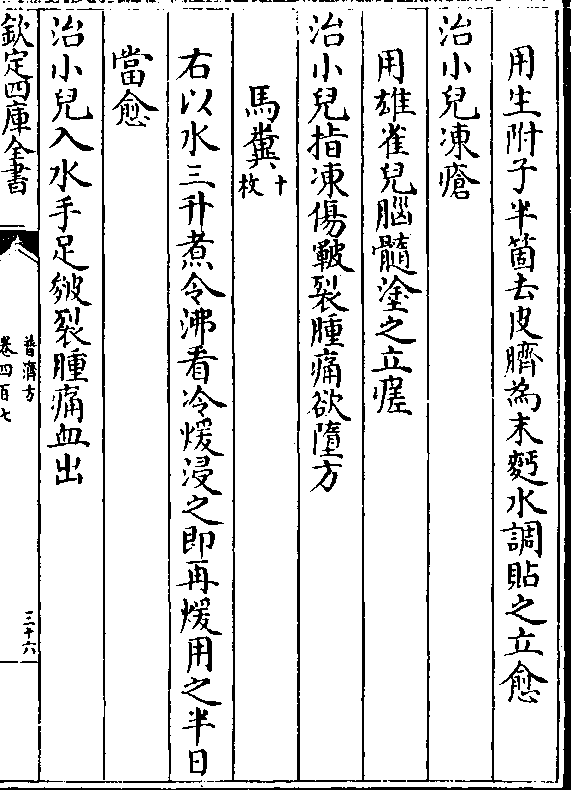 用生附子半箇去皮臍為末麪水調貼之立愈
治小兒凍瘡
用雄雀兒腦髓塗之立瘥
治小兒指凍傷皸裂腫痛欲墮方
馬糞十枚
右以水三升煮令沸看冷煖浸之即再煖用之半日
當愈
治小兒入水手足皴裂腫痛血出
欽定四庫全書
普濟方
卷四百七
三十六